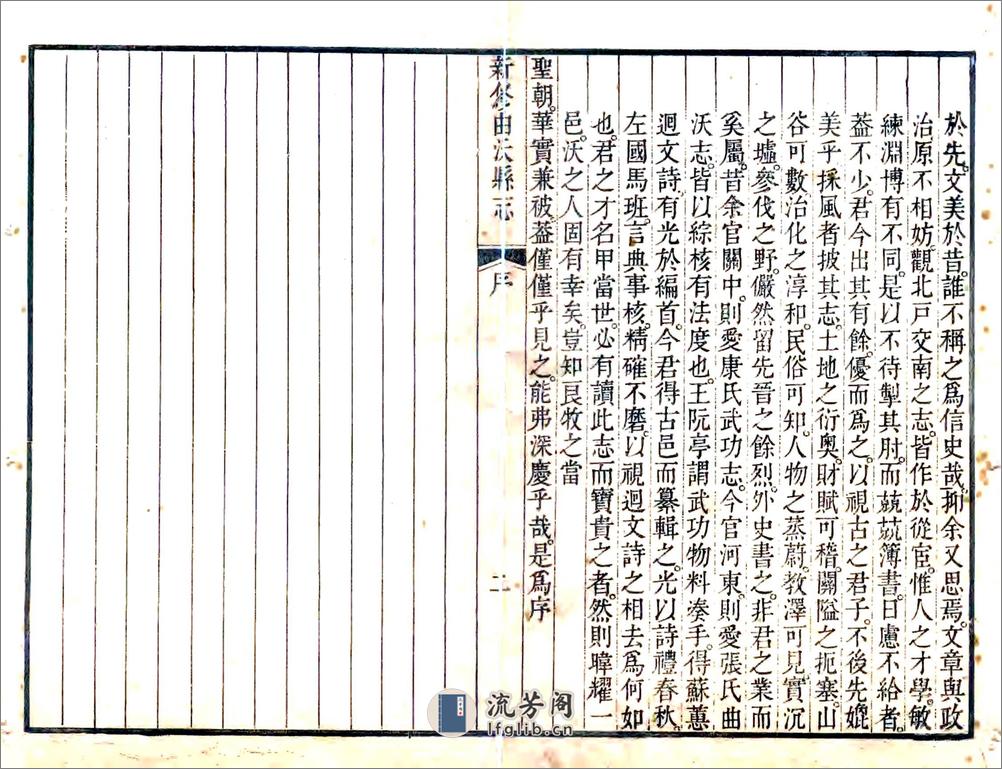 於先文美於昔誰不稱之爲信史哉抑余又思焉文章與政
治原不相妨觀北戸交南之志皆作於從宦惟人之才學敏
練淵博有不同是以不待掣其肘而兢兢簿書日慮不給者
葢不少君今出其有餘優而爲之以視古之君子不後先媲
美乎採風者披其志土地之衍奥財賦可稽關隘之扼塞山
谷可數治化之淳和民俗可知人物之蒸蔚教澤可見實沉
之墟參伐之野儼然留先晉之餘烈外史書之非君之業而
奚屬昔余官關中則愛康氏武功志今官河東則愛張氏曲
沃志皆以綜核有法度也王阮亭謂武功物料奏手得蘇蕙
迴文詩有光於編首今君得古邑而纂輯之光以詩禮春秋
左國馬班言典事核精確不磨以視迴文詩之相去爲何如
也君之才名甲當世必有讀此志而寶貴之者然則暐耀一
邑沃之人固有幸矣豈知艮牧之當
聖朝華實兼被葢僅僅乎見之能弗深慶乎哉是爲序
新修曲沃縣志 序 二
流芳阁
lfglib.cn